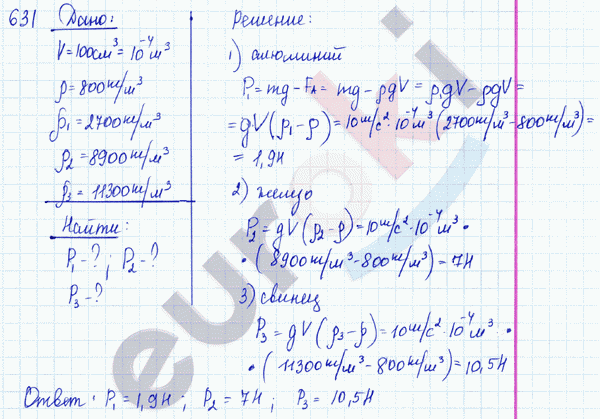 631 Дано:
V = 100 см³ = 10⁻⁴ м³
ρ = 800 кг/м³
ρ₁ = 2700 кг/м³
ρ₂ = 8900 кг/м³
ρ₃ = 11300 кг/м³
Найти:
P₁ - ? ; P₂ - ?
P₃ - ?
Решение:
1) алюминий
P₁ = mg - Fₐ = mg - ρgV = ρ₁gV - ρgV =
= gV(ρ₁ - ρ) = 10 м/с² · 10⁻⁴ м³ (2700 кг/м³ - 800 кг/м³) =
= 1,9 Н
2) железо
P₂ = gV(ρ₂ - ρ) = 10 м/с² · 10⁻⁴ м³ ·
· (8900 кг/м³ - 800 кг/м³) = 7 Н
3) свинец
P₃ = gV(ρ₃ - ρ) = 10 м/с² · 10⁻⁴ м³ ·
· (11300 кг/м³ - 800 кг/м³) = 10,5 Н
Ответ: P₁ = 1,9 Н ; P₂ = 7 Н ; P₃ = 10,5 Н
euroki